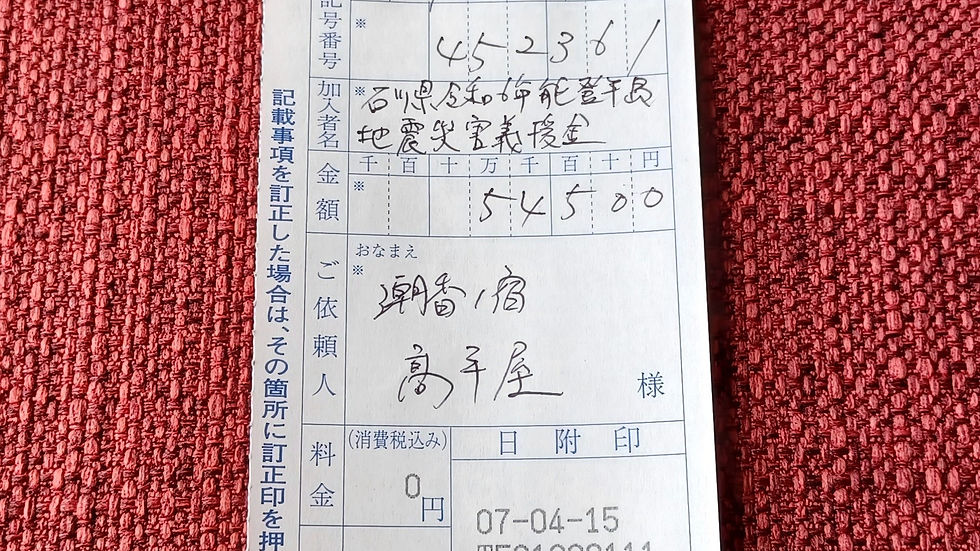 記号番号
※
452361
加入者名
※
石川県令和6年能登半島
地震災害義援金
金額
千 百 十 万 千 百 十 円
※
54500
ご依頼人
おなまえ
※
潮香ノ宿
高平屋
様
料金
(消費税込み)
0円
日附印
07-04-15
記載事項を訂正した場合は、その箇所に訂正印を押